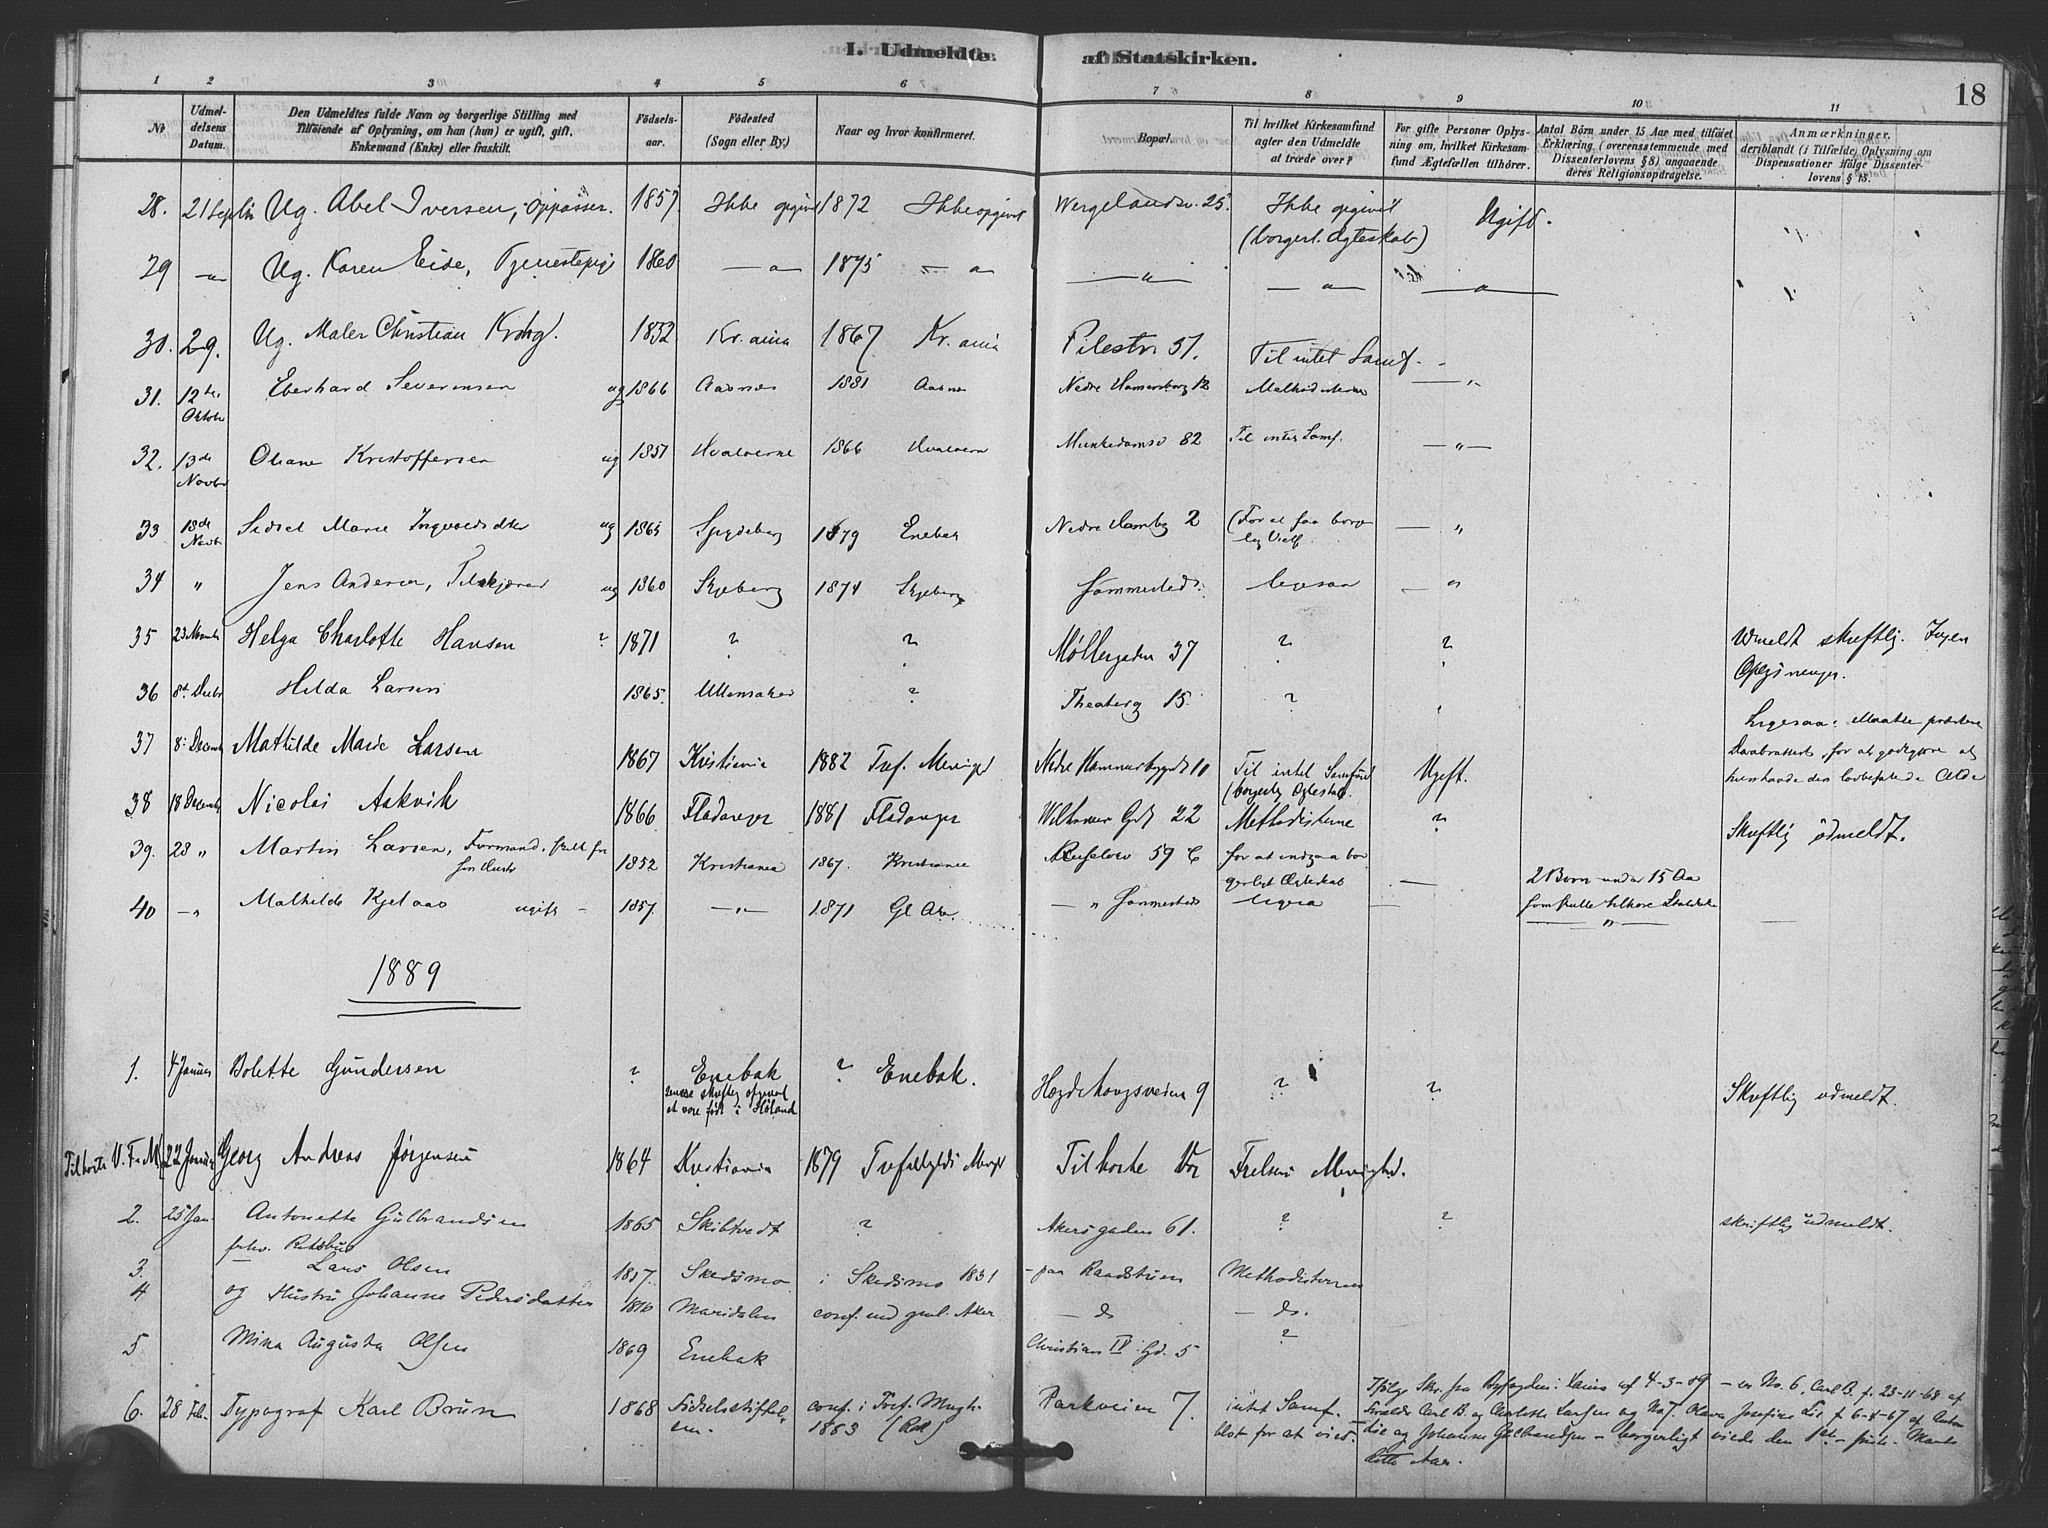 I. Udmeldte af Statskirken.
18
1 2 3 4 5 6 7 8 9 10 11
No
Udmeldelsens Datum.
Den Udmeldtes fulde Navn og borgerlige Stilling med Tilføiende af Oplysning, om han (hun) er ugift, gift, Enkemand (Enke) eller fraskilt.
Fødselsaar.
Fødested (Sogn eller By.)
Naar og hvor konfirmeret.
Bopæl.
Til hvilket Kirkesamfund agter den Udmeldte at træde over?
For gifte Personer Oplysning om, hvilket Kirkesamfund Ægtefællen tilhører.
Antal Børn under 15 Aar med tilføiet Erklæring (overensstemmende med Dissenterlovens § 8) angaaende deres Religionsopdragelse.
Anmærkninger, deriblandt (i Tilfælde) Oplysning om Dispensationer ifølge Dissenterlovens § 15.
28. 21 Septbr Ug. Abel Iversen, Oppasser. 1857. Ikke opgivet 1872 Ikke opgivet Wergelandsv. 25. Ikke opgivet (borgerl. Ægteskab) Ugift.
29 — " Ug. Karen Eide, Tjenestepige 1860 — " — 1875 — " — " — — " — — " —
30. 29. Ug. Maler Christian Krohg. 1852 Kr. ania 1867 Kr. ania Pilestr. 51. Til intet Samf.
31. 12te Oktober Eberhard Severinsen ug 1866 Aasnes 1881 Aasnes Nedre Hammersborg 12 Methodisterne — " —
32. 13de Novbr Oliane Kristoffersen ug 1851 Hvaløerne 1866 Hvaløern Munkedamsv 82 Til intet Samf. — " —
33 18de Novbr Sidsel Marie Ingvoldsdtr ug 1865 Spydeberg 1879 Enebak Nedre Hambg 2 (For at faa borgerlig Vielse — "
34 " Jens Andersen, ug 1860 Skjeberg 1874 Skjeberg Sammesteds. ligesaa — "
35 23 Novembr Helga Charlotte Hansen ? 1871 ? ? Møllergaden 37 ? ? Udmeldt skriftlig. Ingen Oplysninger.
36 8d. Decbr Hilda Larsen 1865 Ullensaker ? Theaterg 15 ? Ligesaa.
37 8: Decemb Mathilde Marie Larsen 1867 Kristiania 1882 Tref. Menighed Nedre Hammersborggd 11 Til intet Samfund (borgerlig Ægteskab. Ugift.
38 18 Decembr Nicolai Aakvik 1866 Fladanger 1881 Fladanger Welhaver Gd 22 Methodisterne ? Skriftlig udmeldt.
39. 28 " Martin Larsen, Formand, skilt fra sin Hustr 1852 Kristiania 1867. Kristiania 59 C for at indgaa borgerligt Ægteskab — 2 Børn under 15 Aar som skulle tilhøre Statskirke
40 — " Mathilde Kjelaas ugift — 1857. — " — 1871 Gl Aker — " Sammesteds ligesaa — — " — —
1889
1. 4 Januar Bolette Gundersen ? Enebak senere skriftlig opgivet at være født i Høland ? Enebak. Hegdehaugsveien 9 ? ? Skriftlig udmeldt.
Tilhørte V. F. M. 22 Januar Georg Andreas Jørgensen 1864 Kristiania 1879 Trefoldigheds Menigh Tilhørte Vor Frelsers Menighed.
2. 25 Jan. Antonette Gulbrandsen 1865 Skibtvedt ? Akersgaden 61. ? ? skriftlig udmeldt.
3. Lars Olsen 1817. Skedsmo i Skedsmo 1831 - paa Raadstuen Methodisterne
4 og Hustru Johanne Pedersdatter Maridalen conf. ved gml. Aker — do — do.
5 Mina Augusta Olsen 1869 Enebak Christian IV. Gd. 5 ?
6. 28 Feb. Typograf Karl Brun 1868 Fødselsstiftelsen. conf. i Tref. Mngh. 1883 Parkveien 7. intet Samf. blot for at vies. Ifølge Skr. fra Byfogden i Xania af 4-3-89 — er No. 6, Carl B. f. 23-11-68 af Forældre Carl B. og Charlotte Larsen og No 7. Olava Josefine Lie f. 6-4-67 af Anton Lie og Johanne Gulbrandsen — borgerligt viede den 1st. — ds. Marts dette Aar.